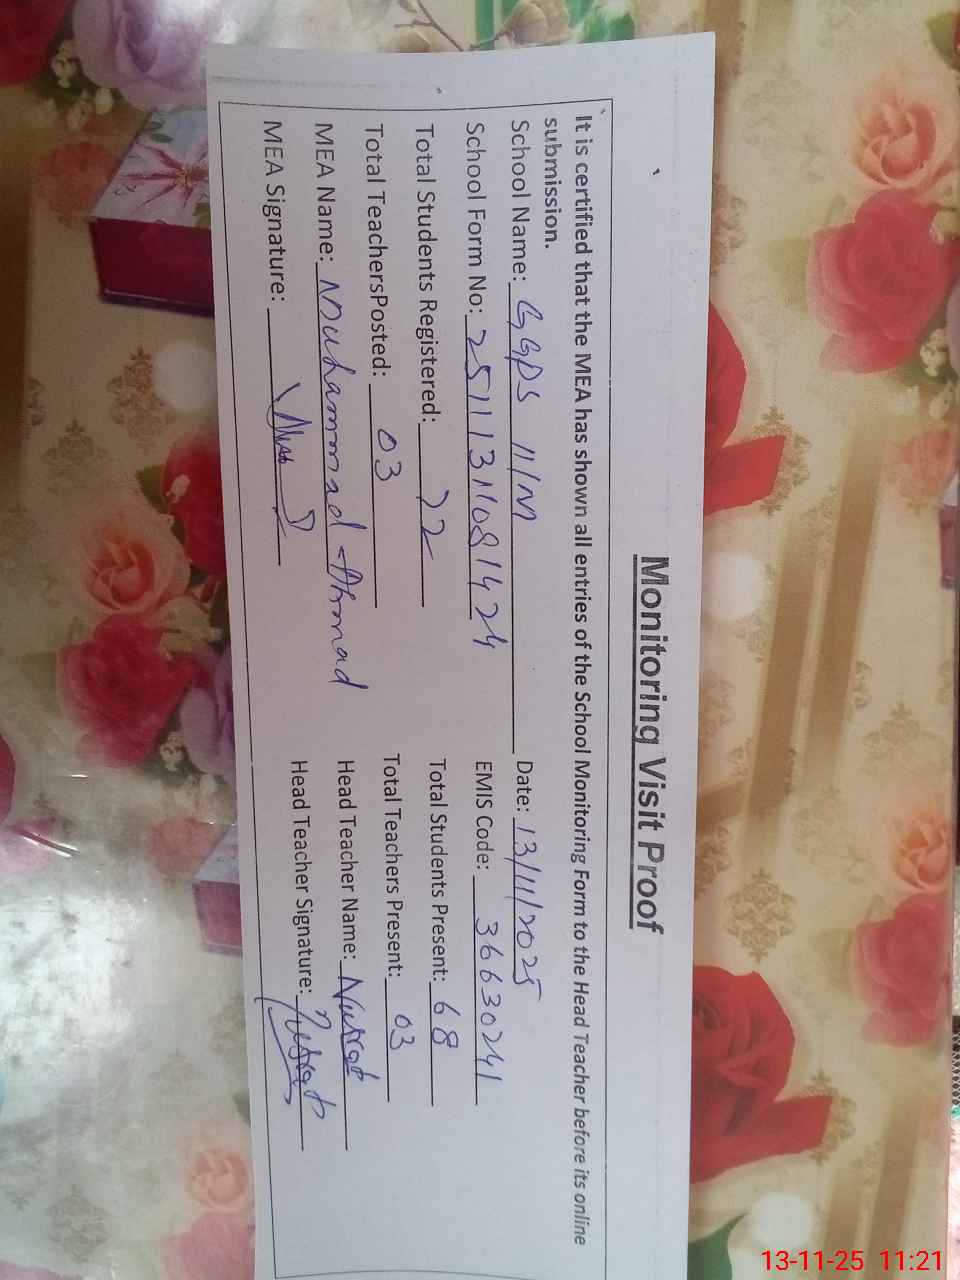 Monitoring Visit Proof
It is certified that the MEA has shown all entries of the School Monitoring Form to the Head Teacher before its online
submission.
School Name: GGPS 11/M Date: 13/11/2025
School Form No: 25111311081424 EMIS Code: 36630241
Total Students Registered: 72 Total Students Present: 68
Total TeachersPosted: 03 Total Teachers Present: 03
MEA Name: Muhammad Ahmad Head Teacher Name: Nusrat
MEA Signature: Head Teacher Signature: Nusrat
13-11-25 11:21